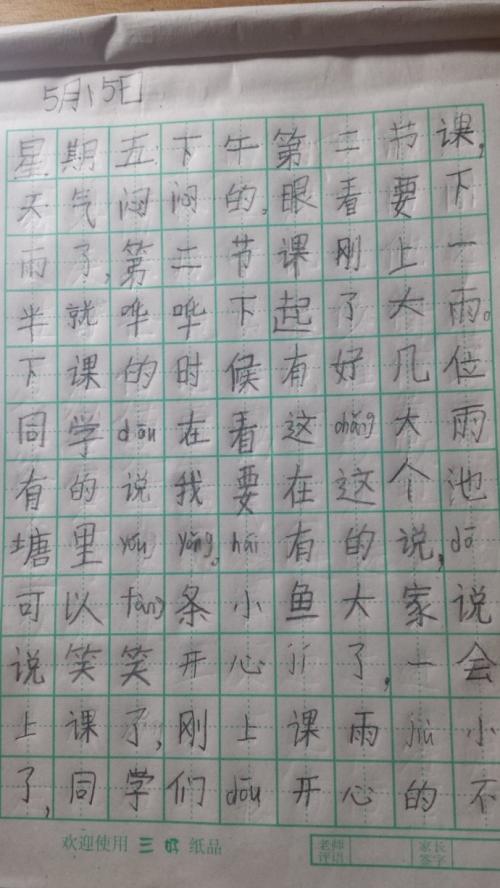 5月15日
星期五下午第二节课,
天气闷闷的,眼看要下
雨了,第二节课刚上一
半就哗哗下起了大雨。
下课的时候有好几位
同学dōu在看这chǎng大雨
有的说我要在这个池
塘里yóu yǒng,hái有的说,dō
可以tān条小鱼大家说
说笑笑开心jí了,一会
上课了,刚上课雨jiù小
了,同学们dōu开心的不
欢迎使用 三 纸品
老师评语 家长签字